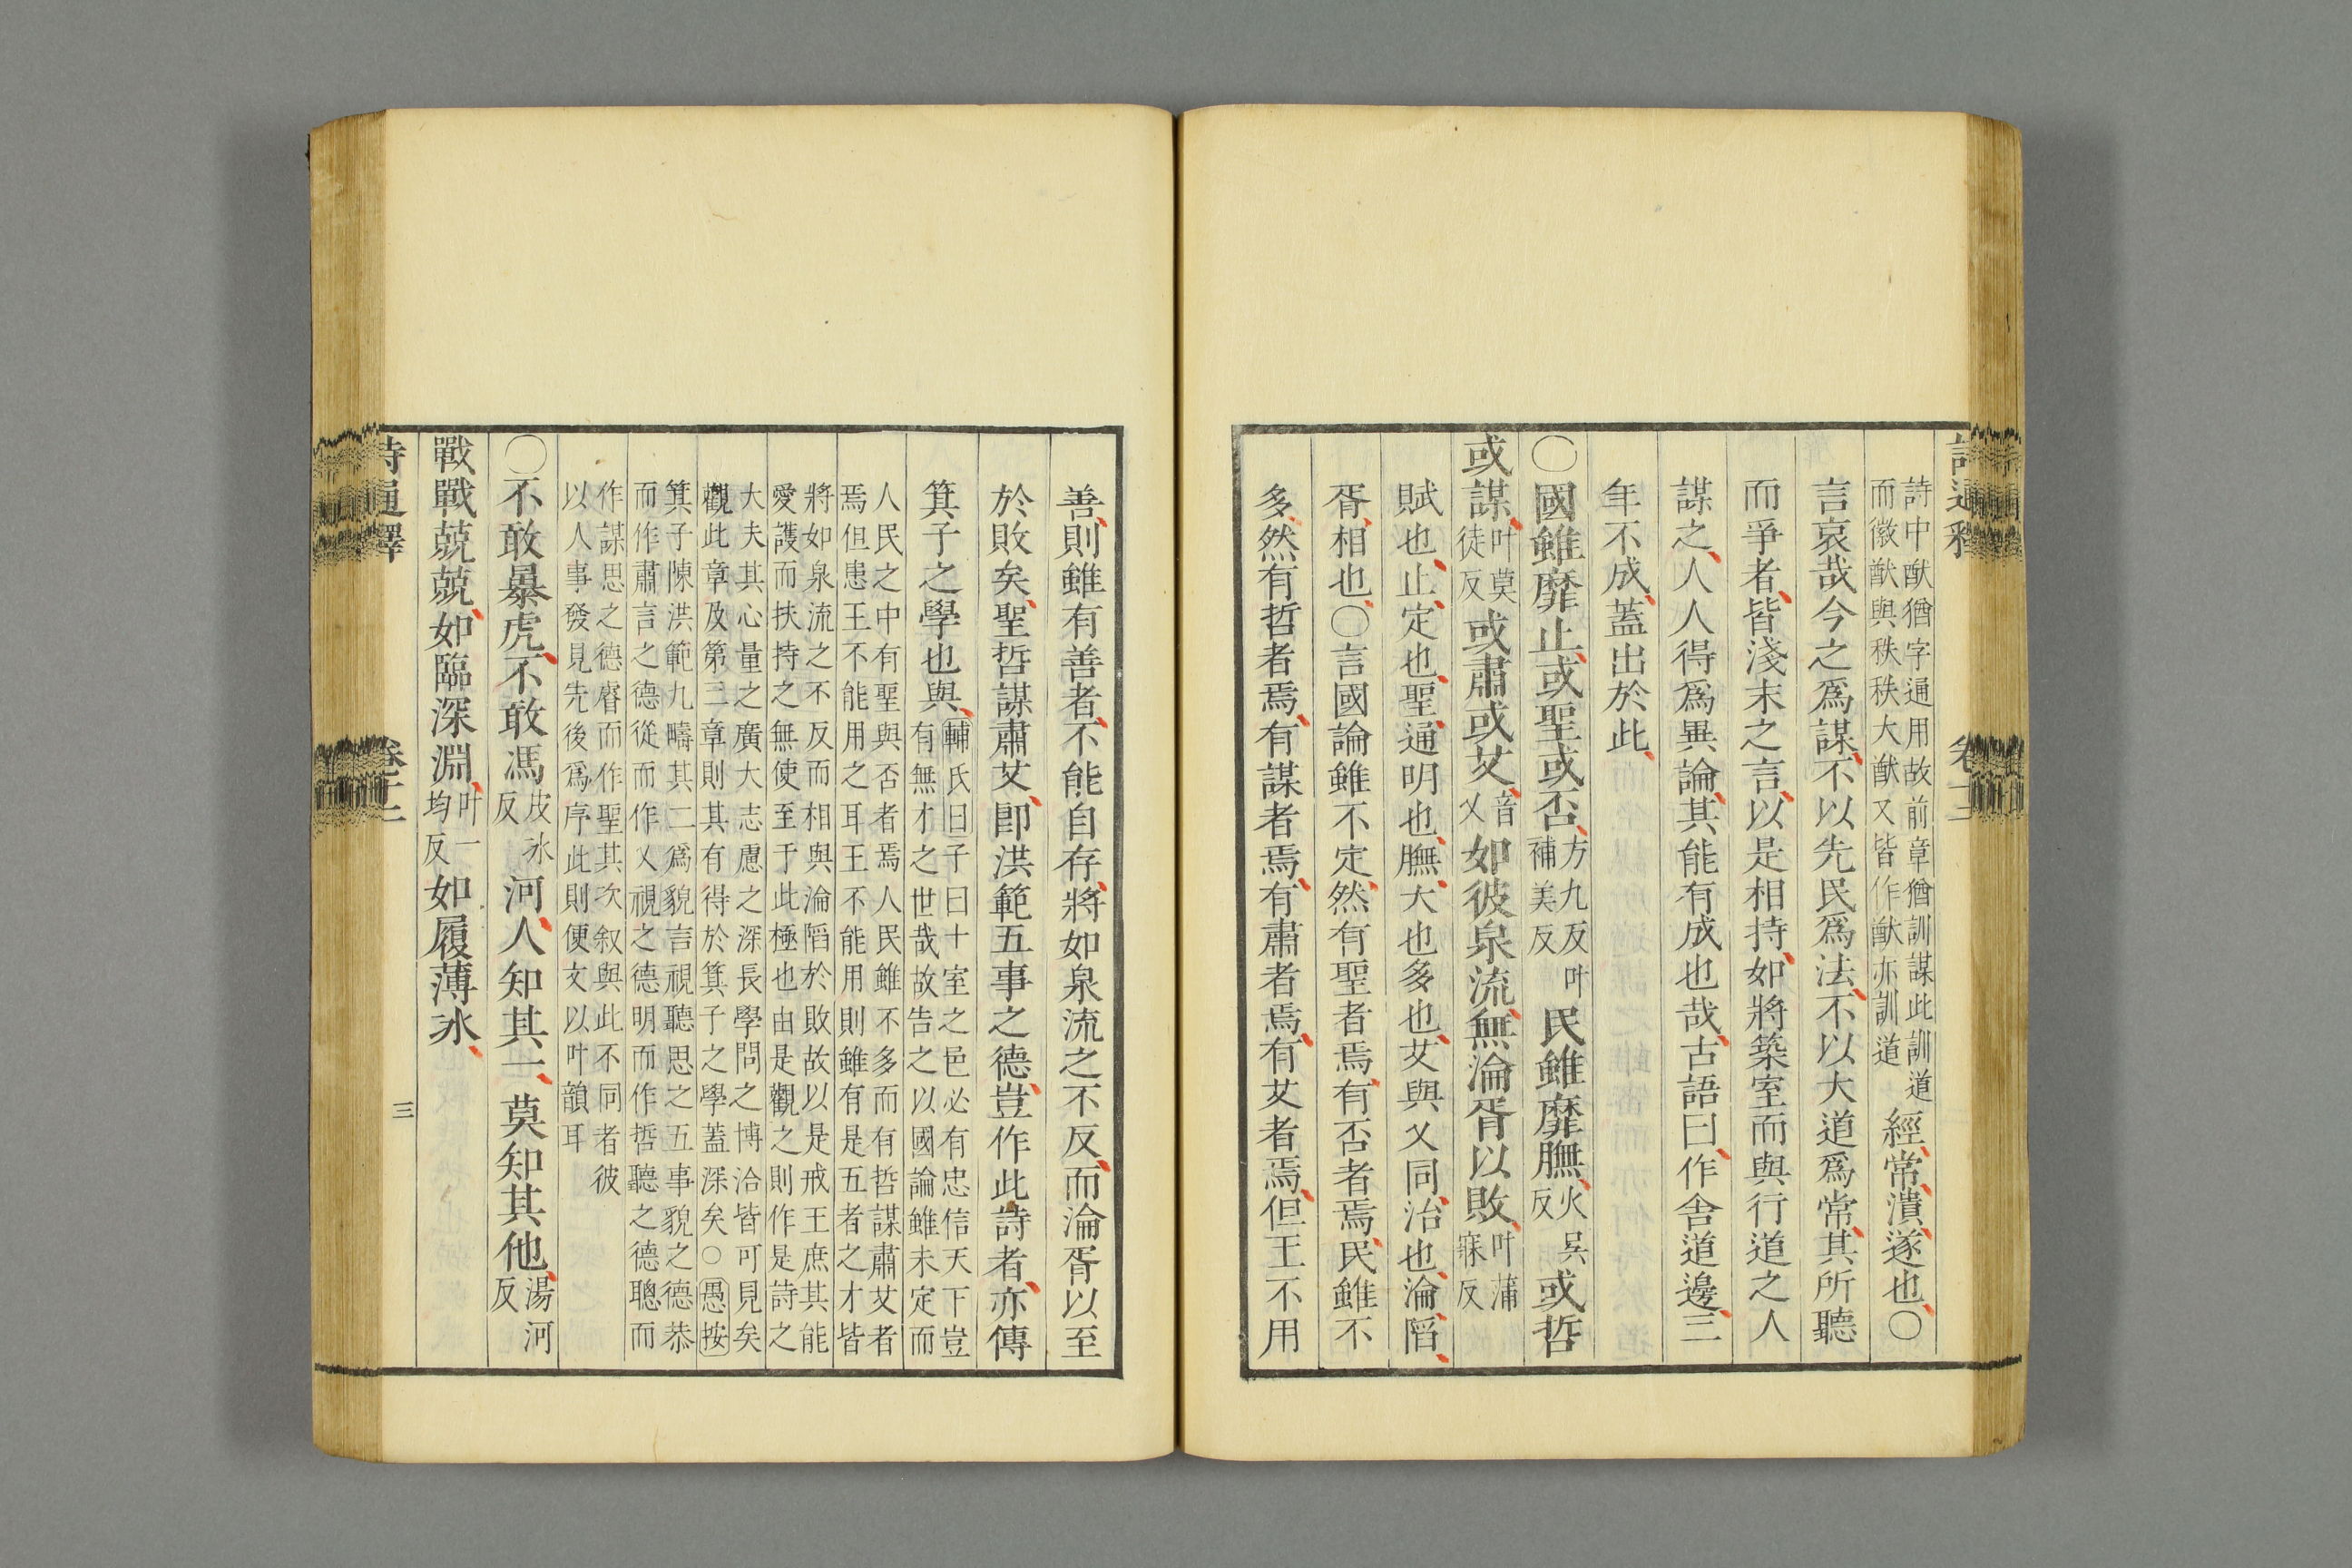 詩中猷猶字通用故前章猶訓謀此訓道
而徵猷與秩秩大猷又皆作猷亦訓道
經常潰遂也○
言哀哉今之爲謀不以先民爲法不以大道爲常其所聽
而爭者皆淺末之言以是相持如將築室而與行道之人
謀之人人得爲異論其能有成也哉古語曰作舍道邊三
年不成蓋出於此
○國雖靡止或聖或否方九反叶補美反民雖靡膴火吳反或哲
或謀叶莫徒反或肅或艾音乂如彼泉流無淪胥以敗叶蒲寐反
賦也止定也聖通明也膴大也多也艾與乂同治也淪陷
胥相也○言國論雖不定然有聖者焉有否者焉民雖不
多然有哲者焉有謀者焉有肅者焉有艾者焉但王不用
善則雖有善者不能自存將如泉流之不反而淪胥以至
於敗矣聖哲謀肅艾即洪範五事之德豈作此詩者亦傳
箕子之學也與
輔氏曰子曰十室之邑必有忠信天下豈
有無才之世哉故告之以國論雖未定而
人民之中有聖與否者焉人民雖不多而有哲謀肅艾者
焉但患王不能用之耳王不能用則雖有是五者之才皆
將如泉流之不反而相與淪陷於敗故以是戒王庶其能
愛護而扶持之無使至于此極也由是觀之則作是詩之
大夫其心量之廣大志慮之深長學問之博洽皆可見矣
觀此章及第三章則其有得於箕子之學蓋深矣○愚按
箕子陳洪範九疇其二爲貌言視聽思之五事貌之德恭
而作肅言之德從而作乂視之德明而作哲聽之德聰而
作謀思之德睿而作聖其次叙與此不同者彼
以人事發見先後爲序此則便文以叶韻耳
○不敢暴虎不敢馮皮冰反河人知其一莫知其他湯河反
戰戰兢兢如臨深淵叶一均反如履薄冰
詩通釋
卷十二
三